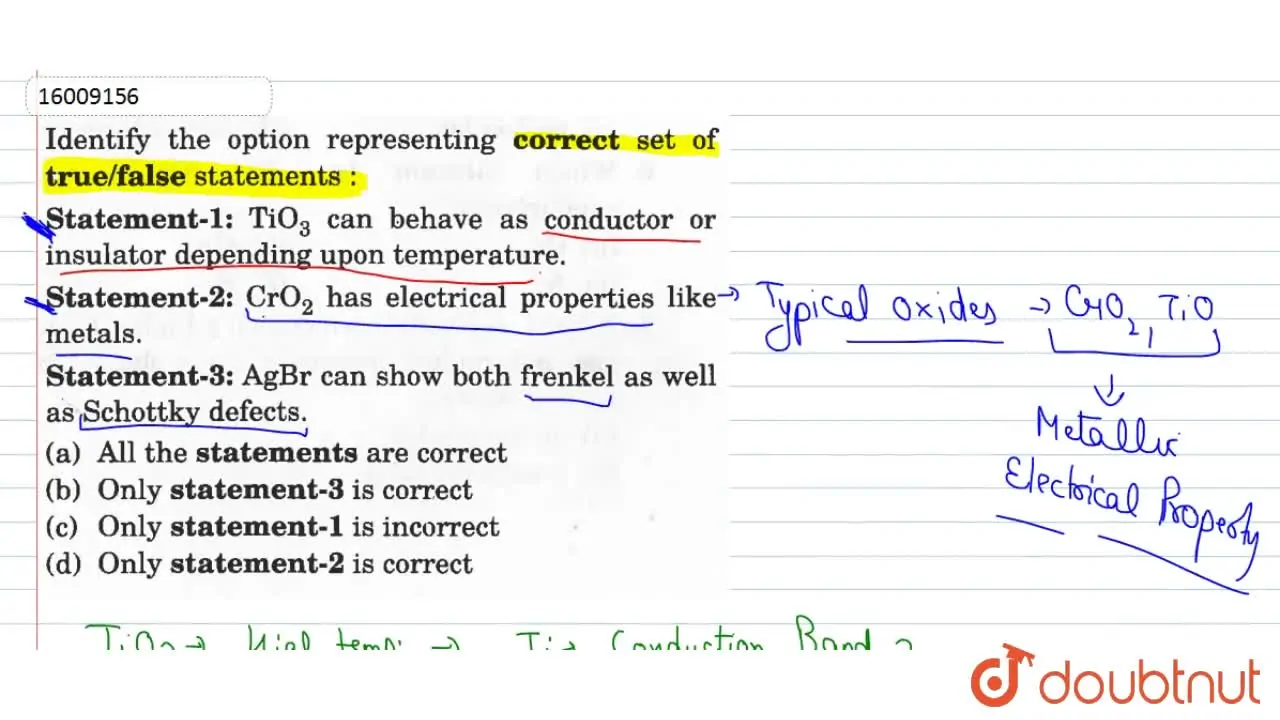 16009156
Identify the option representing correct set of
true/false statements :
Statement-1: TiO₃ can behave as conductor or
insulator depending upon temperature.
Statement-2: CrO₂ has electrical properties like
metals.
Statement-3: AgBr can show both frenkel as well
as Schottky defects.
(a) All the statements are correct
(b) Only statement-3 is correct
(c) Only statement-1 is incorrect
(d) Only statement-2 is correct
→ Typical oxides → CrO₂, TiO
↓
Metallic
Electrical Property
→ → Conduction Band
doubtnut